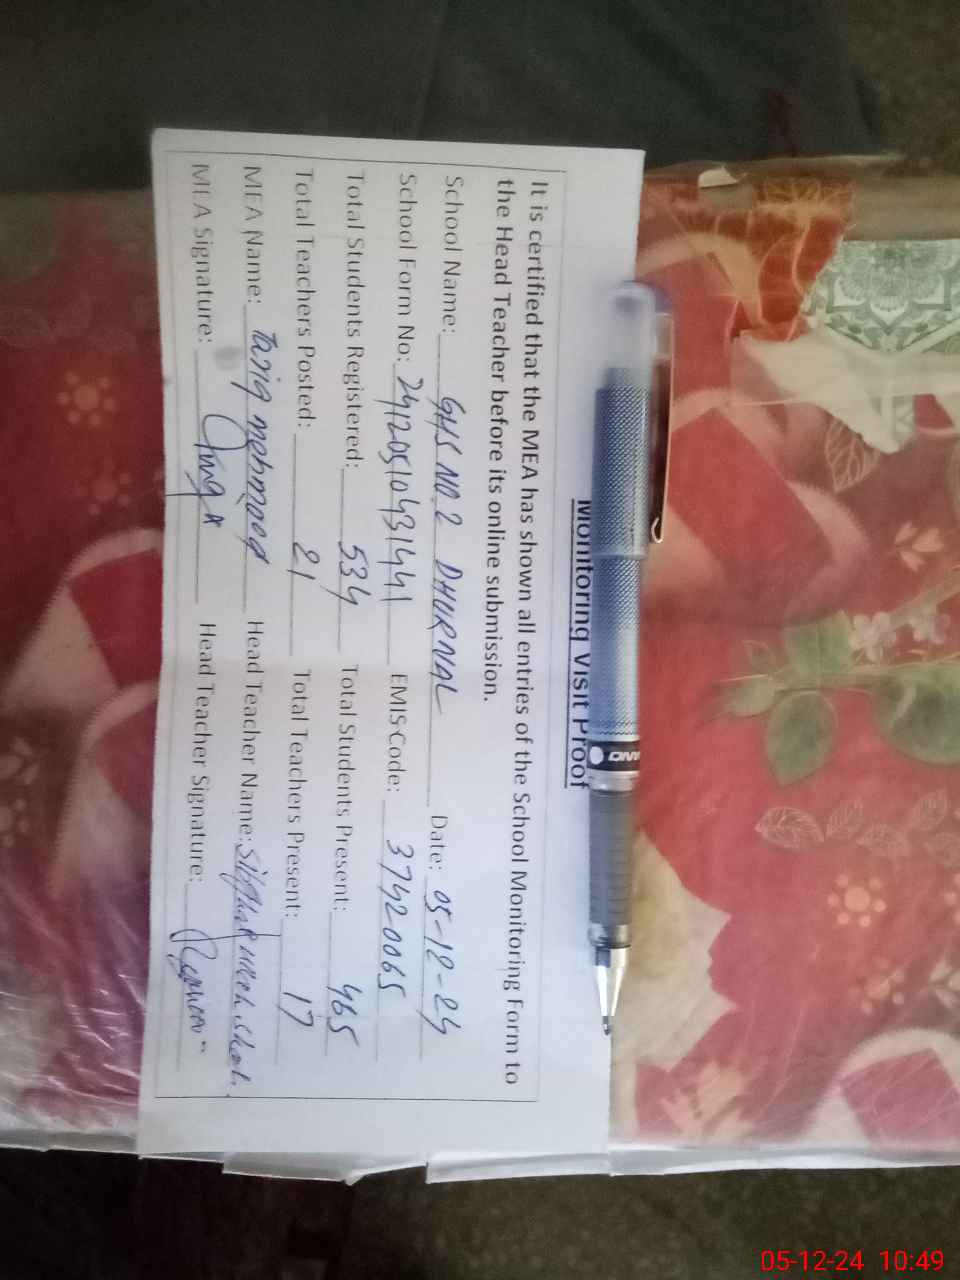 Monitoring Visit Proof
It is certified that the MEA has shown all entries of the School Monitoring Form to
the Head Teacher before its online submission.
School Name: GHS NO.2 DHURNAL Date: 05-12-24
School Form No: 241205104931441 EMIS Code: 37420065
Total Students Registered: 534 Total Students Present: 465
Total Teachers Posted: 21 Total Teachers Present: 17
MEA Name: Tariq mehmood Head Teacher Name:
MEA Signature: Head Teacher Signature:
05-12-24 10:49